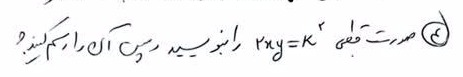 ④ صورت قطبی 2xy=K² را بنویسید سپس آن را رسم کنید؟